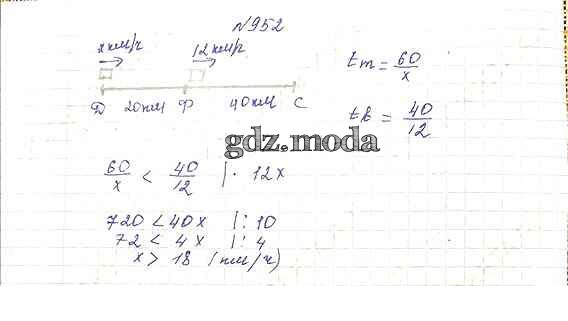 №952
x км/ч 12 км/ч
Д 20 км Ф 40 км С
tм = 60/x
tв = 40/12
gdz.moda
60/x < 40/12 | · 12x
720 < 40x | : 10
72 < 4x | : 4
x > 18 (км/ч)